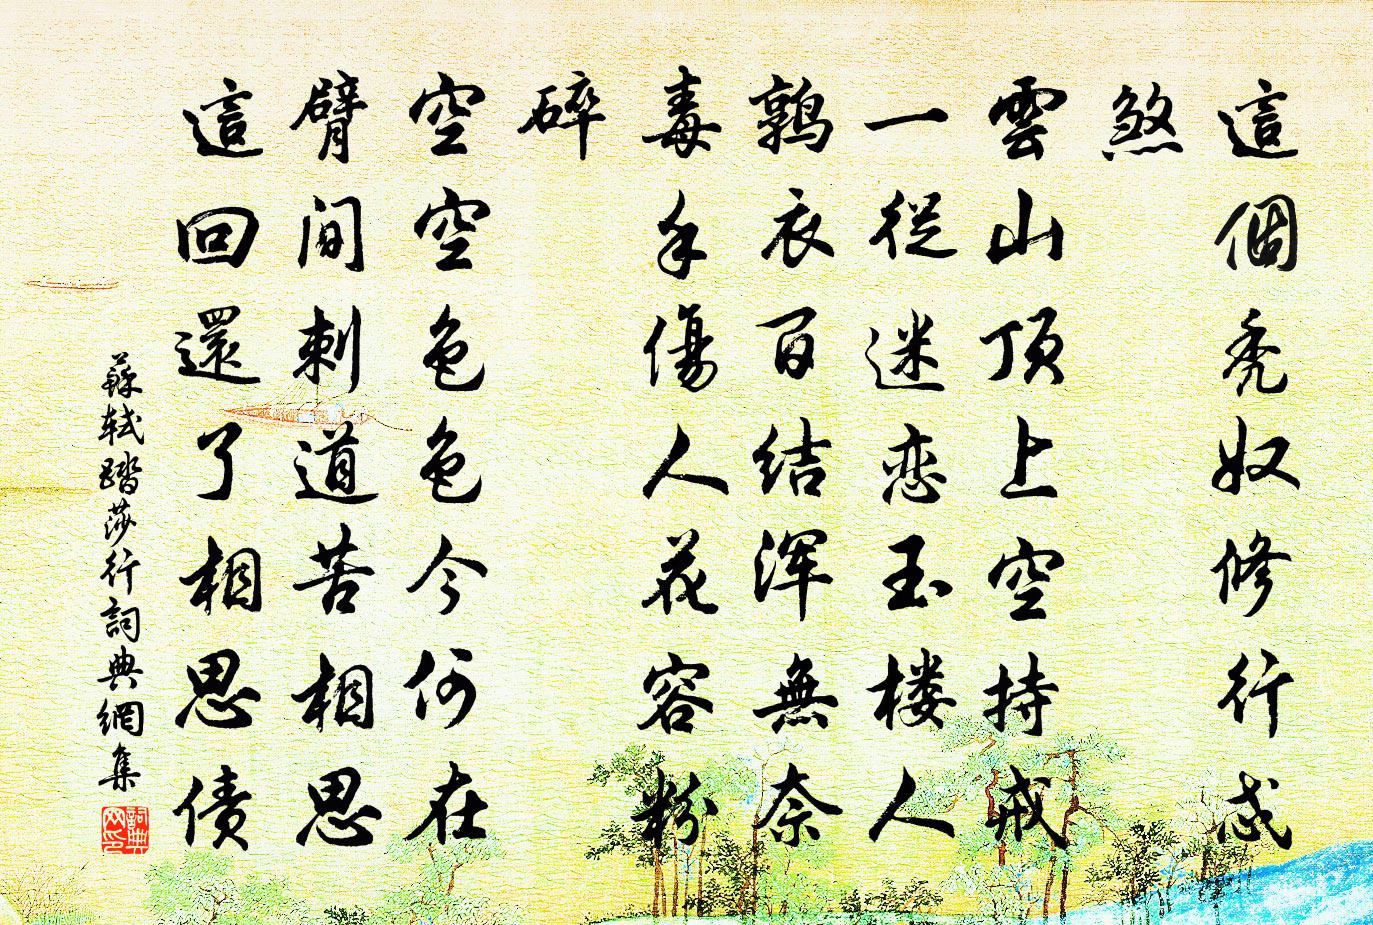 這個秃奴修行忒
煞
雲山頂上空持戒
一從迷恋玉楼人
鶉衣百结浑無奈
毒手傷人花容粉
碎
空空色色今何在
臂间刺道苦相思
這回還了相思债
蘇轼踏莎行詞典網集
詞典网印